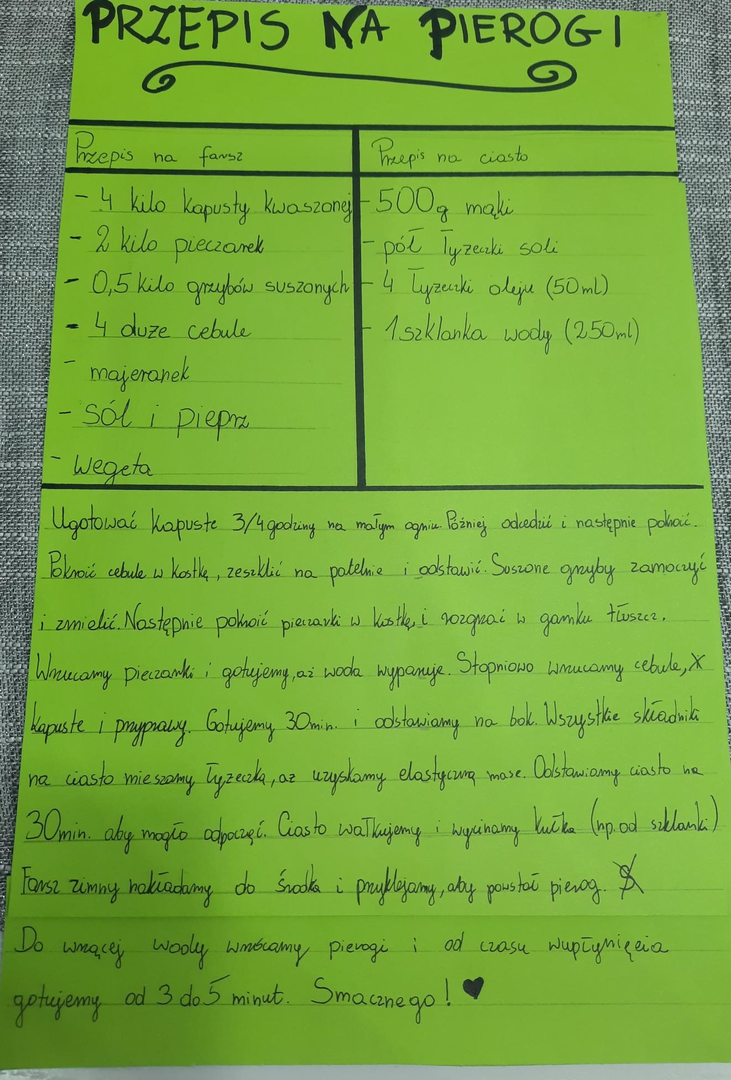 PRZEPIS NA PIEROGI
Przepis na farsz
- 4 kilo kapusty kwaszonej
- 2 kilo pieczarek
- 0,5 kilo grzybów suszonych
- 4 duże cebule
- majeranek
- sól i pieprz
- wegeta
Przepis na ciasto
- 500g mąki
- pół łyżeczki soli
- 4 łyżeczki oleju (50ml)
- 1 szklanka wody (250ml)
Ugotować kapuste 3/4 godziny na małym ogniu. Później odcedzić i następnie pokroić.
Pokroić cebule w kostkę, zeszklić na patelnie i odstawić. Suszone grzyby zamoczyć
i zmielić. Następnie pokroić pieczarki w kostkę i rozgrzać w garnku tłuszcz.
Wrzucamy pieczarki i gotujemy, aż woda wyparuje. Stopniowo wrzucamy cebule,
kapuste i przyprawy. Gotujemy 30min. i odstawiamy na bok. Wszystkie składniki
na ciasto mieszamy łyżeczką, aż uzyskamy elastyczną mase. Odstawiamy ciasto na
30min. aby mogło odpocząć. Ciasto wałkujemy i wycinamy kułka (np. od szklanki)
Farsz zimny nakładamy do środka i przyklejamy, aby powstał pierog.
Do wrzącej wody wrzócamy pierogi i od czasu wupłynięcia
gotujemy od 3 do 5 minut. Smacznego! ♥